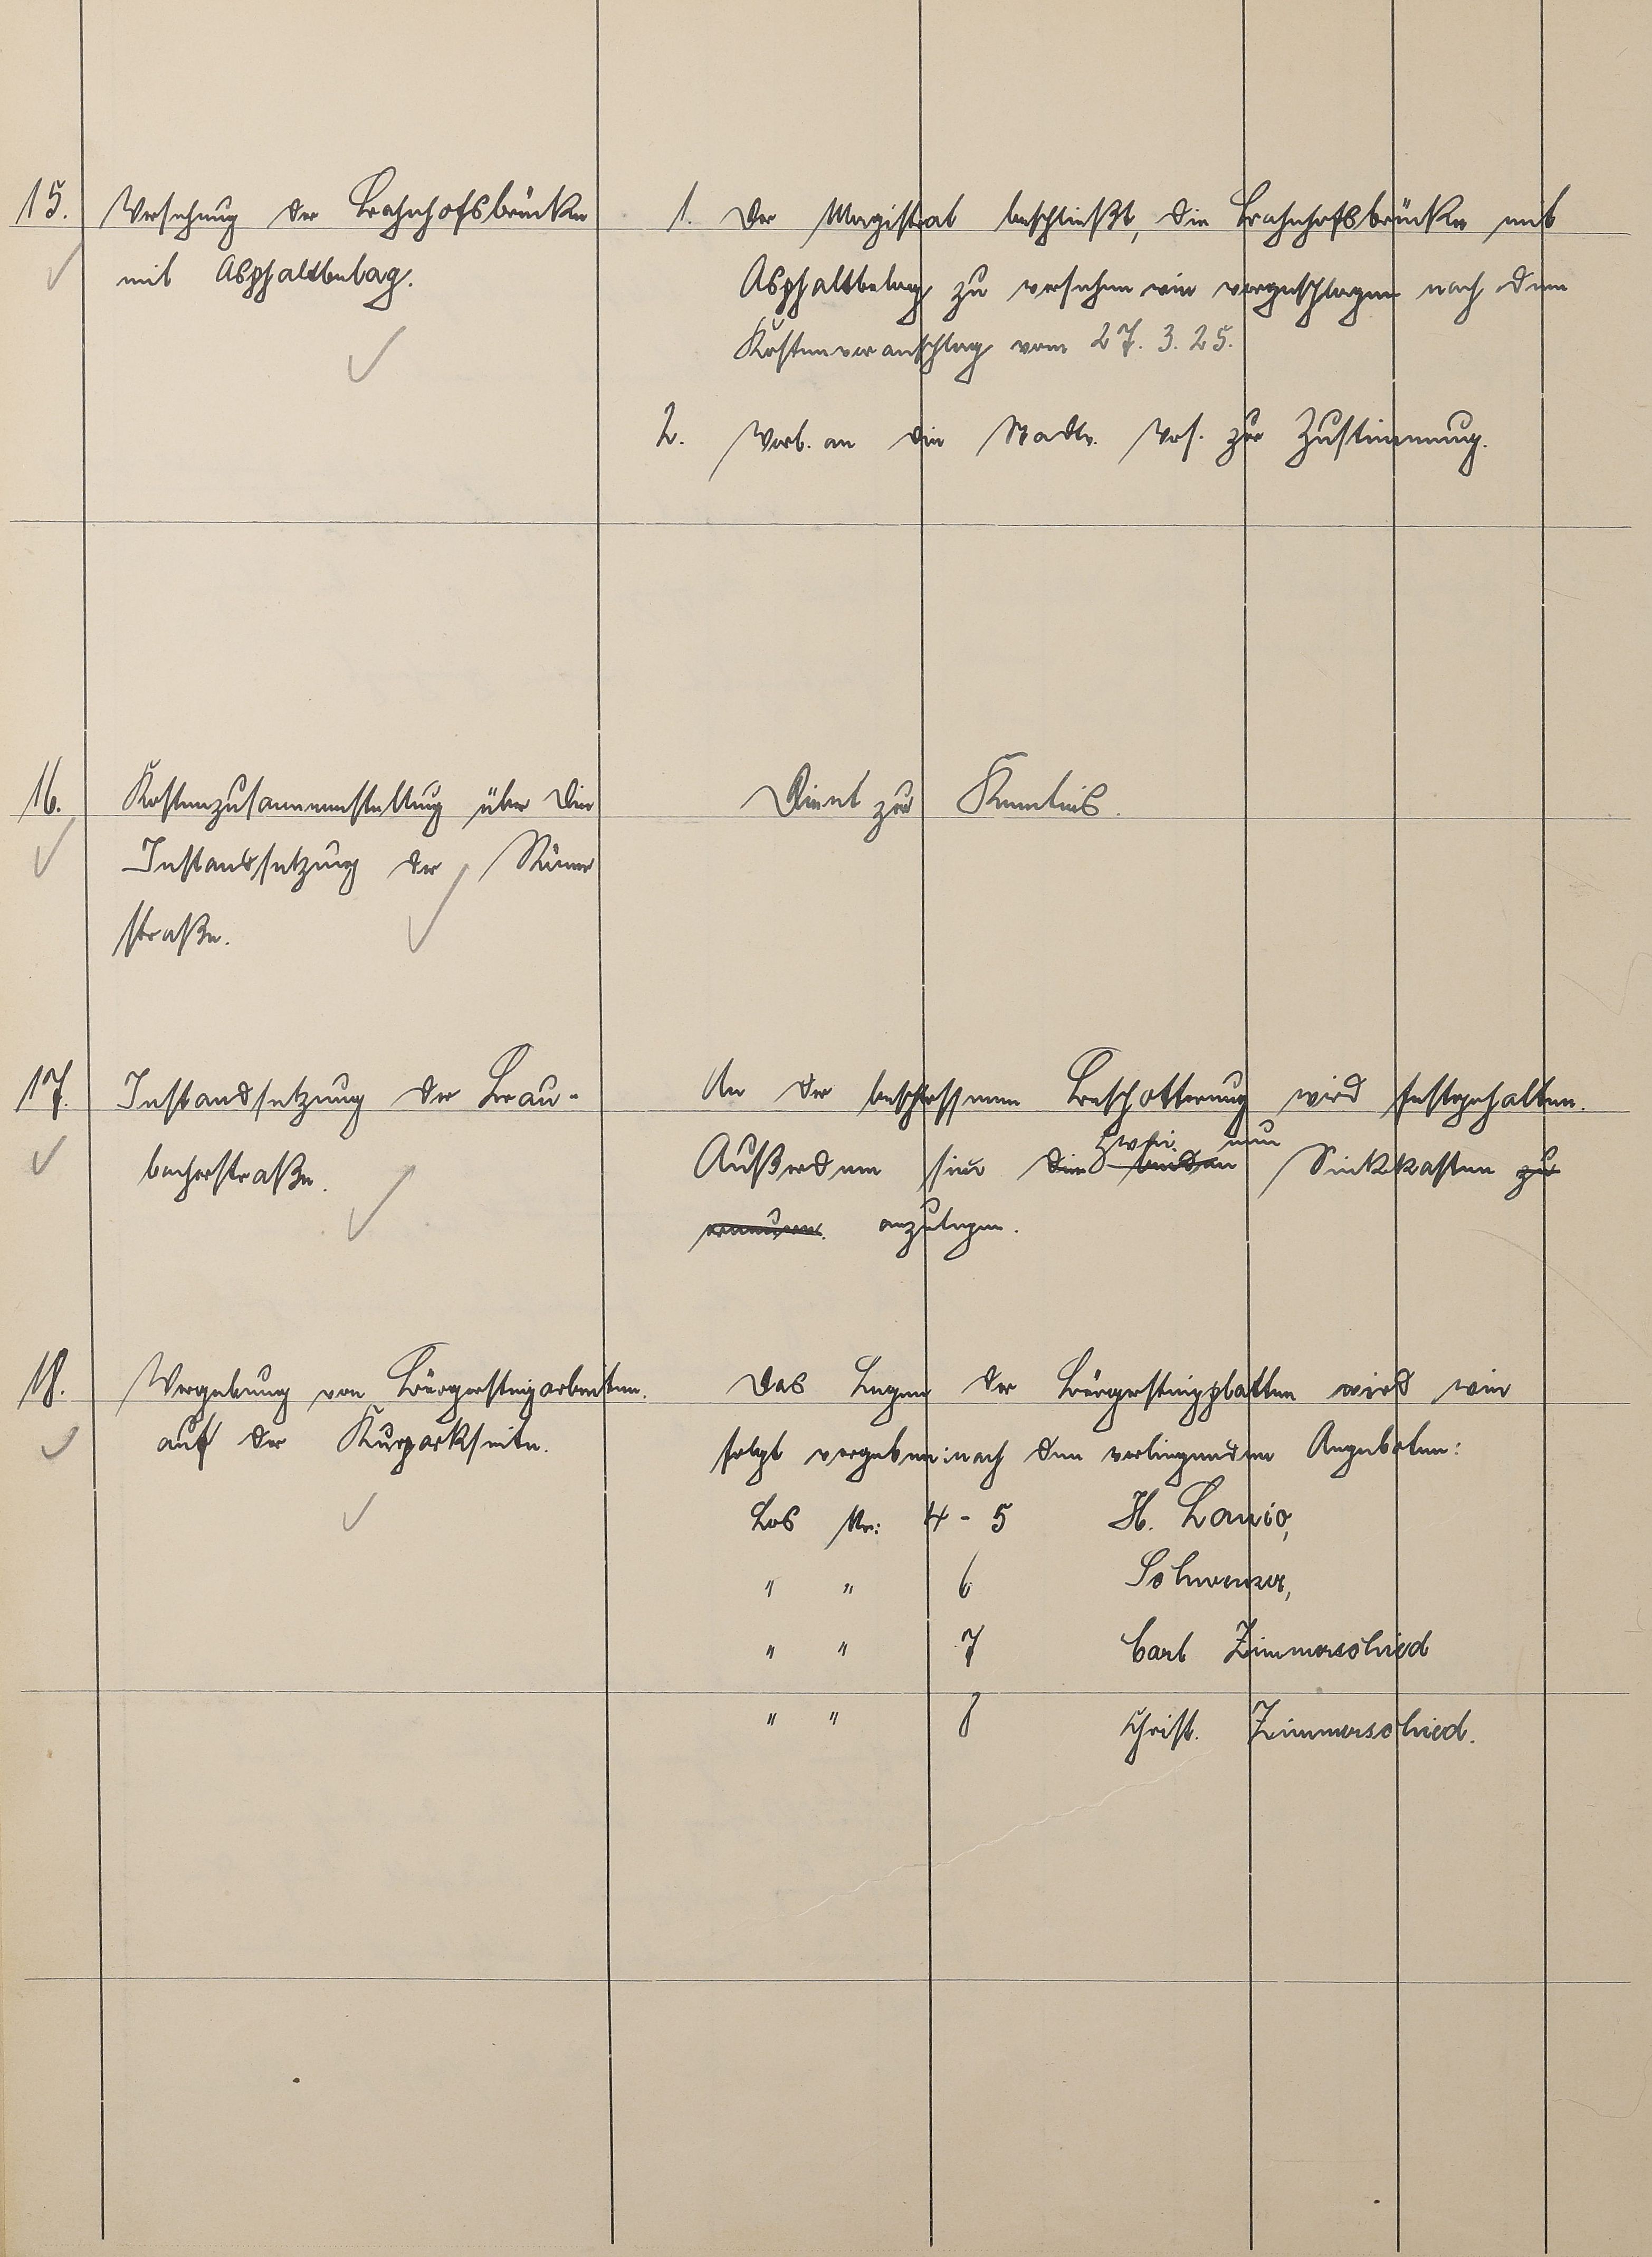 15. Versehung der Bahnhofsbrücke
mit Asphaltbelag.
1. Der Magistrat beschließt, die Bahnhofsbrücke mit
Asphaltbelag zu versehen wie vorgeschlagen nach dem
Kostenveranschlag vom 27. 3. 25.
2. Vorl. an die Stadtv. Vers. zur Zustimmung.
16. Kostenzusammenstellung über die
Instandsetzung der Römer
straße.
Dient zur Kenntnis.
17. Instandsetzung der Brau-
bacherstraße.
An der beschlossenen Beschotterung wird festgehalten.
zwei neue
Außerdem sind die beiden Sinkkasten zu
erneuern. anzulegen.
18. Vergebung von Bürgersteigarbeiten.
auf der Kurparkseite.
Das Legen der Bürgersteigplatten wird wie
folgt vergeben: nach den vorliegenden Angeboten:
Los Nr: 4 - 5 H. Lanio,
" " 6 Schwenzer,
" " 7 Carl Zimmerschied
" " 8 Christ. Zimmerschied.